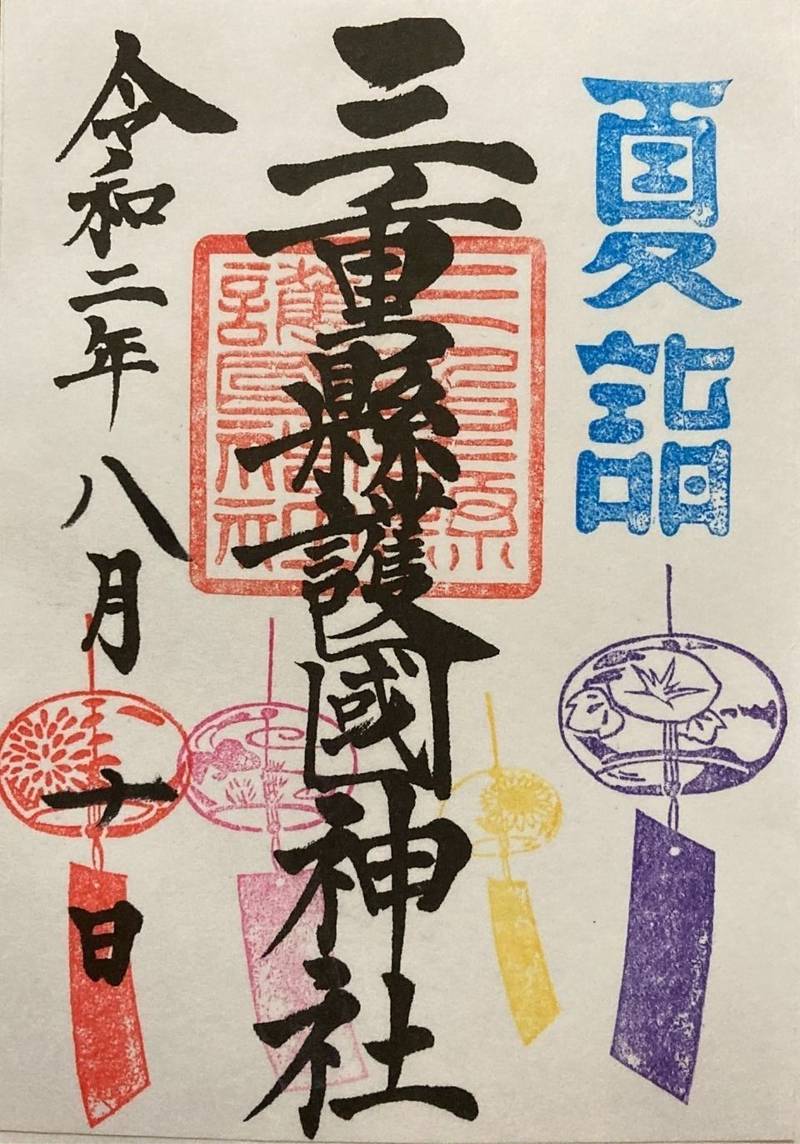 夏詣
三重縣護國神社
三重縣護國神社
令和二年八月十日